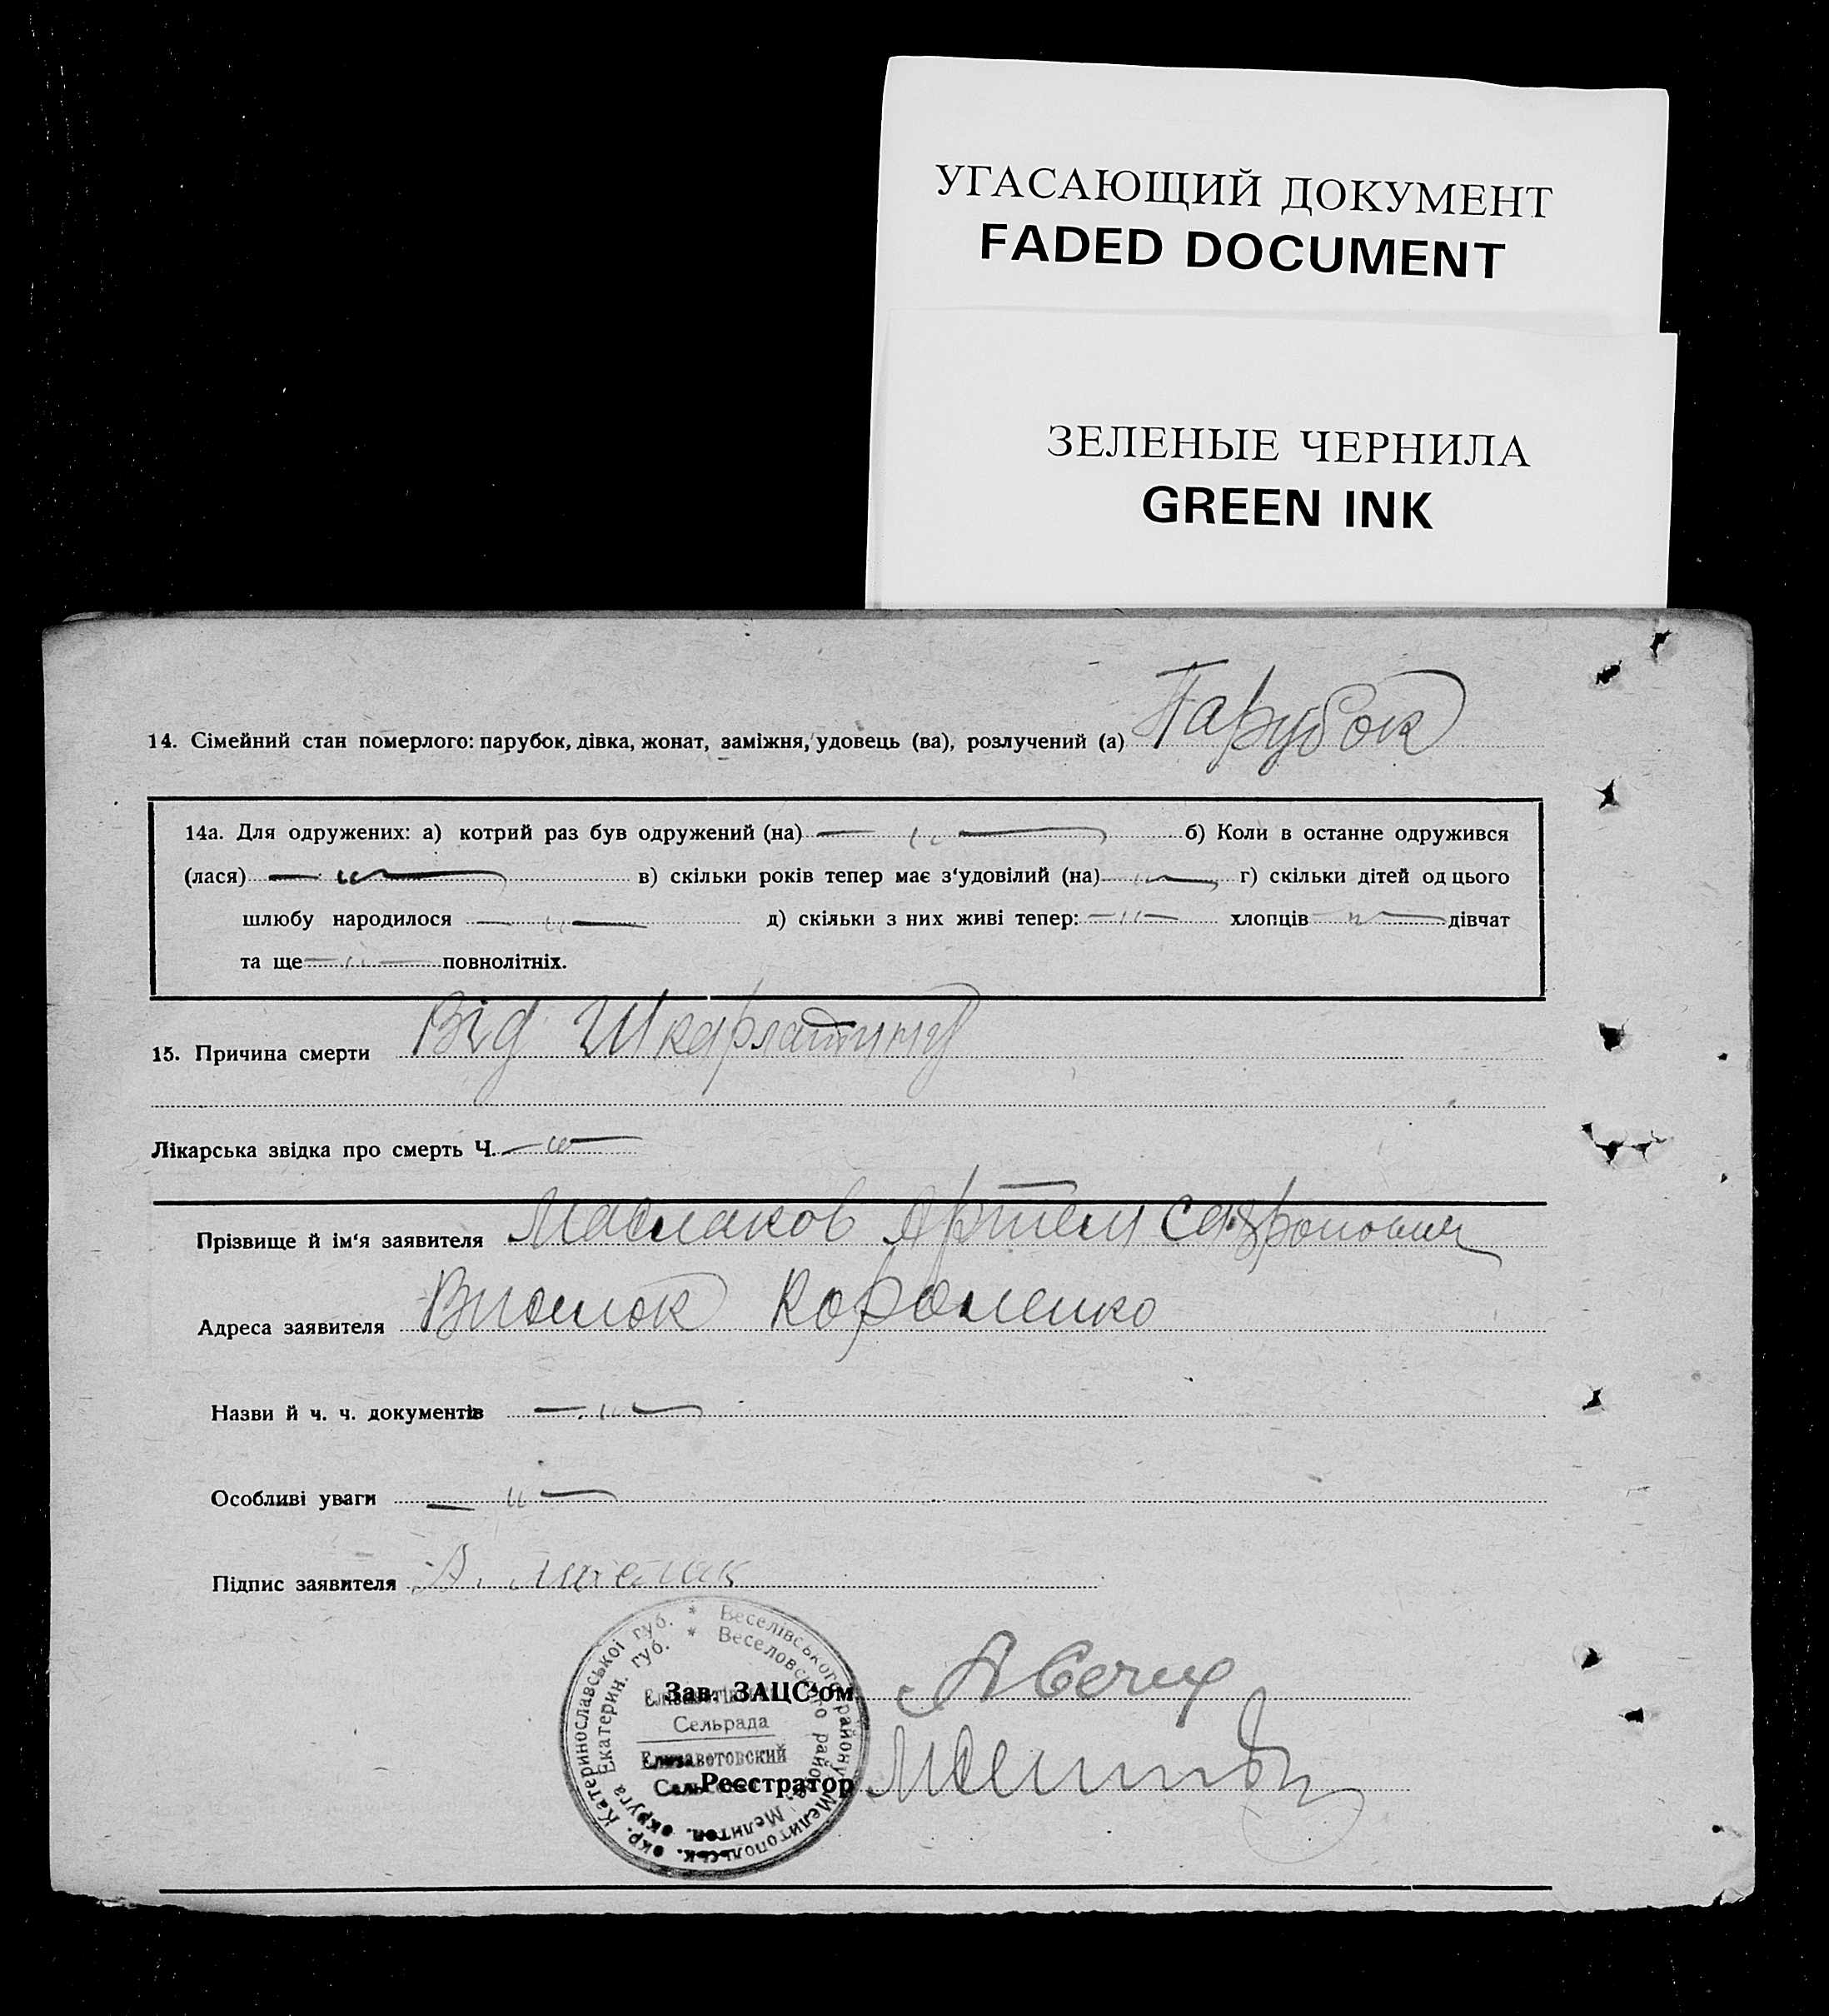 УГАСАЮЩИЙ ДОКУМЕНТ
FADED DOCUMENT
ЗЕЛЕНЫЕ ЧЕРНИЛА
GREEN INK
14. Сімейний стан померлого: парубок, дівка, жонат, заміжня, удовець (ва), розлучений (а) Парубок
14а. Для одружених: а) котрий раз був одружений (на) — " — б) Коли в останне одружився
(лася) — " — в) скільки років тепер має з'удовілий (на) " — г) скільки дітей од цього
шлюбу народилося — " — д) скільки з них живі тепер: — " — хлопців — " — дівчат
та ще — " — повнолітніх.
15. Причина смерти Від Шкарлатину
Лікарська звідка про смерть Ч. — " —
Прізвище й ім'я заявителя Маслаков Артем
Адреса заявителя Виселок Короленко
Назви й ч. ч. документів — " —
Особливі уваги — " —
Підпис заявителя А.
Катеринославської губ. * Веселівського району Мелитопольськ. окр.
Екатерин. губ. * Веселовского района, Мелитоп. округа
Сельрада
Елизаветовский
Зав. ЗАЦС'ом
Реєстратор